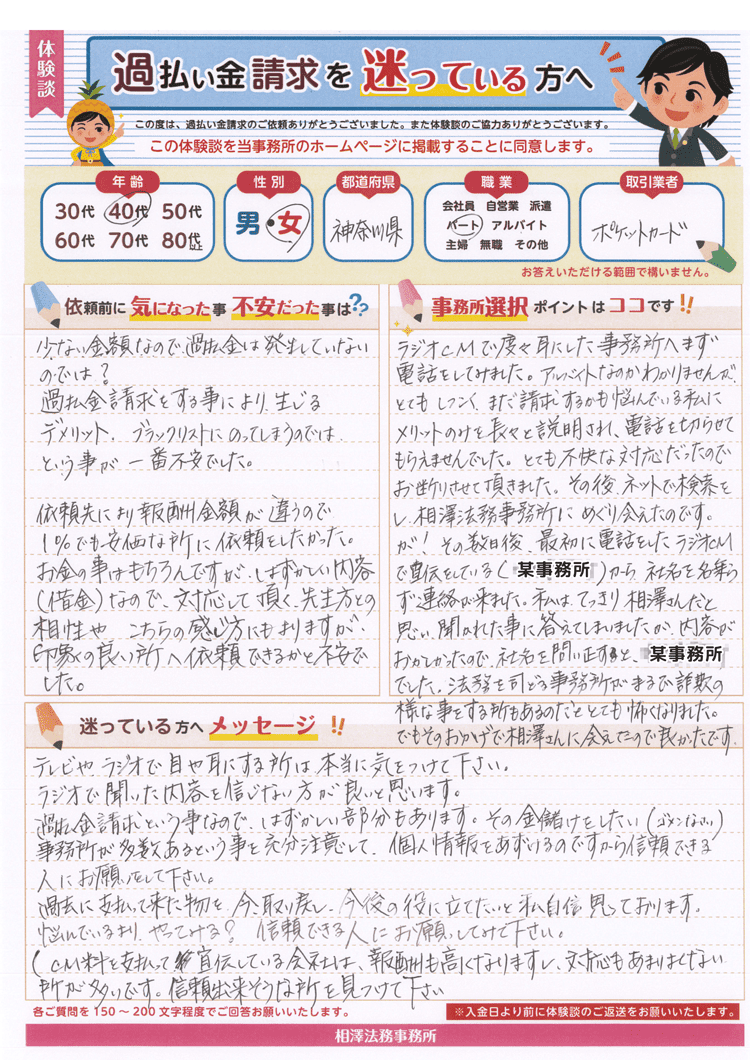 体験談
過払い金請求を迷っている方へ
この度は、過払い金請求のご依頼ありがとうございました。また体験談のご協力ありがとうございます。
この体験談を当事務所のホームページに掲載することに同意します。
年齢
30代 40代 50代
60代 70代 80代以上
性別
男・女
都道府県
神奈川県
職業
会社員 自営業 派遣
パート アルバイト
主婦 無職 その他
取引業者
ポケットカード
お答えいただける範囲で構いません。
依頼前に気になった事 不安だった事は??
少ない金額なので過払金は発生していない
のでは?
過払金請求をする事により生じる
デメリット、ブラックリストにのってしまうのでは
という事が一番不安でした。
依頼先により報酬金額が違うので
1%でも安価な所に依頼をしたかった。
お金の事はもちろんですが、はずかしい内容
(借金)なので、対応して頂く先生方との
相性や こちらの感じ方にもよりますが、
印象の良い所へ依頼できるかと不安で
した。
事務所選択ポイントはココです!!
ラジオCMで度々耳にした事務所へまず
電話をしてみました。アルバイトなのかわかりませんが、
とてもしつこく、まだ請求するかも悩んでいる私に
メリットのみを長々と説明され、電話を切らせて
もらえませんでした。とても不快な対応だったので
お断りさせて頂きました。その後、ネットで検索を
し、相澤法務事務所にめぐり会えたのです。
が! その数日後、最初に電話をしたラジオCM
で宣伝をしている(『某事務所』)から、社名を名乗ら
ず連絡が来ました。私は、てっきり相澤さんだと
思い、聞かれた事に答えてしまいましたが、内容が
おかしかったので、社名を問い正すと、『某事務所』
でした。法務を司どる事務所がまるで詐欺の
様な事をする所もあるのだととても怖くなりました。
でもそのおかげで相澤さんに会えたので良かったです。
迷っている方へメッセージ!!
テレビや、ラジオで目や耳にする所は、本当に気をつけて下さい。
ラジオで聞いた内容を信じない方が良いと思います。
過払金請求という事なので、はずかしい部分もあります。その金儲けをしたい(ゴメンなさい)
事務所が多数あるという事を充分注意して、個人情報をあずけるのですから信頼できる
人にお願いをして下さい。
過去に支払って来た物を、今、取り戻し、今後の役に立てたいと私自信思っております。
悩んでいるより、やってみる? 信頼できる人にお願いしてみて下さい。
(CM料を支払って宣伝している会社は、報酬も高くなりますし、対応もあまりよくない
所が多いです。信頼出来そうな所を見つけて下さい
各ご質問を150～200文字程度でご回答お願いいたします。
※入金日より前に体験談のご返送をお願いいたします。
相澤法務事務所